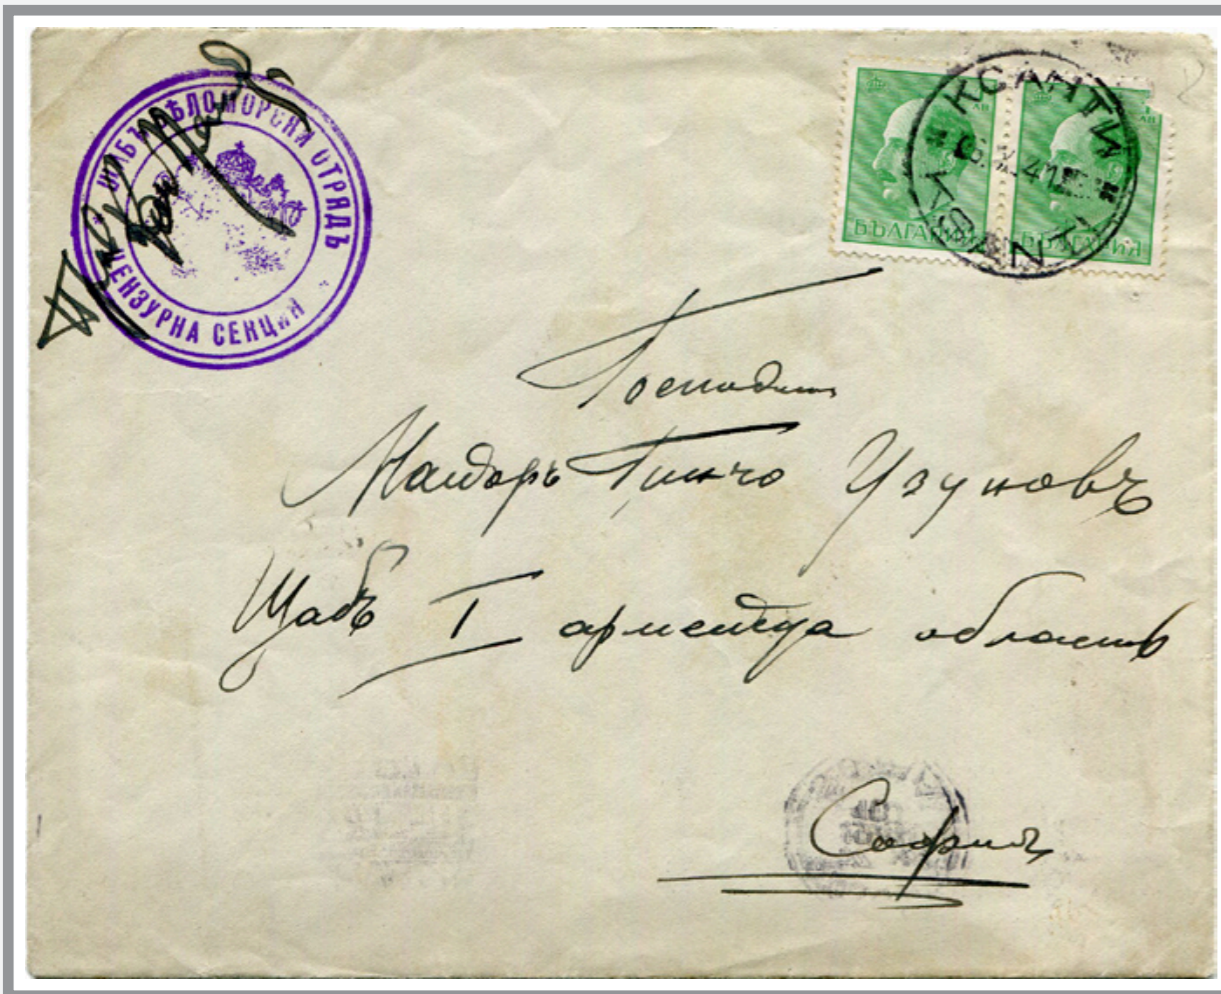 ЩАБЪ БѢЛОМОРСКИ ОТРЯДЪ
ЦЕНЗУРНА СЕКЦИЯ
КСАНТИ
XANTHI
БЪЛГАРИЯ
БЪЛГАРИЯ
Господинъ
Майоръ Гинчо Узуновъ
Щабъ I армейска область
София